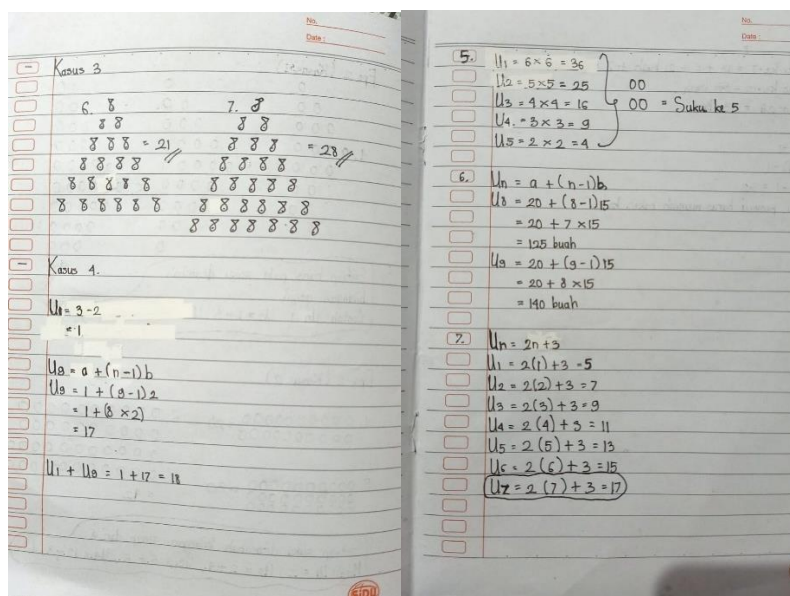 No.
Date :
Kasus 3
6. 8
8 8
8 8 8 = 21
8 8 8 8
8 8 8 8 8
8 8 8 8 8 8
7. 8
8 8
8 8 8 = 28
8 8 8 8
8 8 8 8 8
8 8 8 8 8 8
8 8 8 8 8 8 8
Kasus 4.
U1 = 3 - 2
= 1
U9 = a + (n-1)b
U9 = 1 + (9-1)2
= 1 + (8 × 2)
= 17
U1 + U9 = 1 + 17 = 18
SiDU
No.
Date :
5. U1 = 6 × 6 = 36
U2 = 5 × 5 = 25
U3 = 4 × 4 = 16
U4 = 3 × 3 = 9
U5 = 2 × 2 = 4
00
00 = Suku ke 5
6. Un = a + (n-1)b
U8 = 20 + (8-1)15
= 20 + 7 × 15
= 125 buah
U9 = 20 + (9-1)15
= 20 + 8 × 15
= 140 buah
7. Un = 2n + 3
U1 = 2(1) + 3 = 5
U2 = 2(2) + 3 = 7
U3 = 2(3) + 3 = 9
U4 = 2(4) + 3 = 11
U5 = 2(5) + 3 = 13
U6 = 2(6) + 3 = 15
U7 = 2(7) + 3 = 17